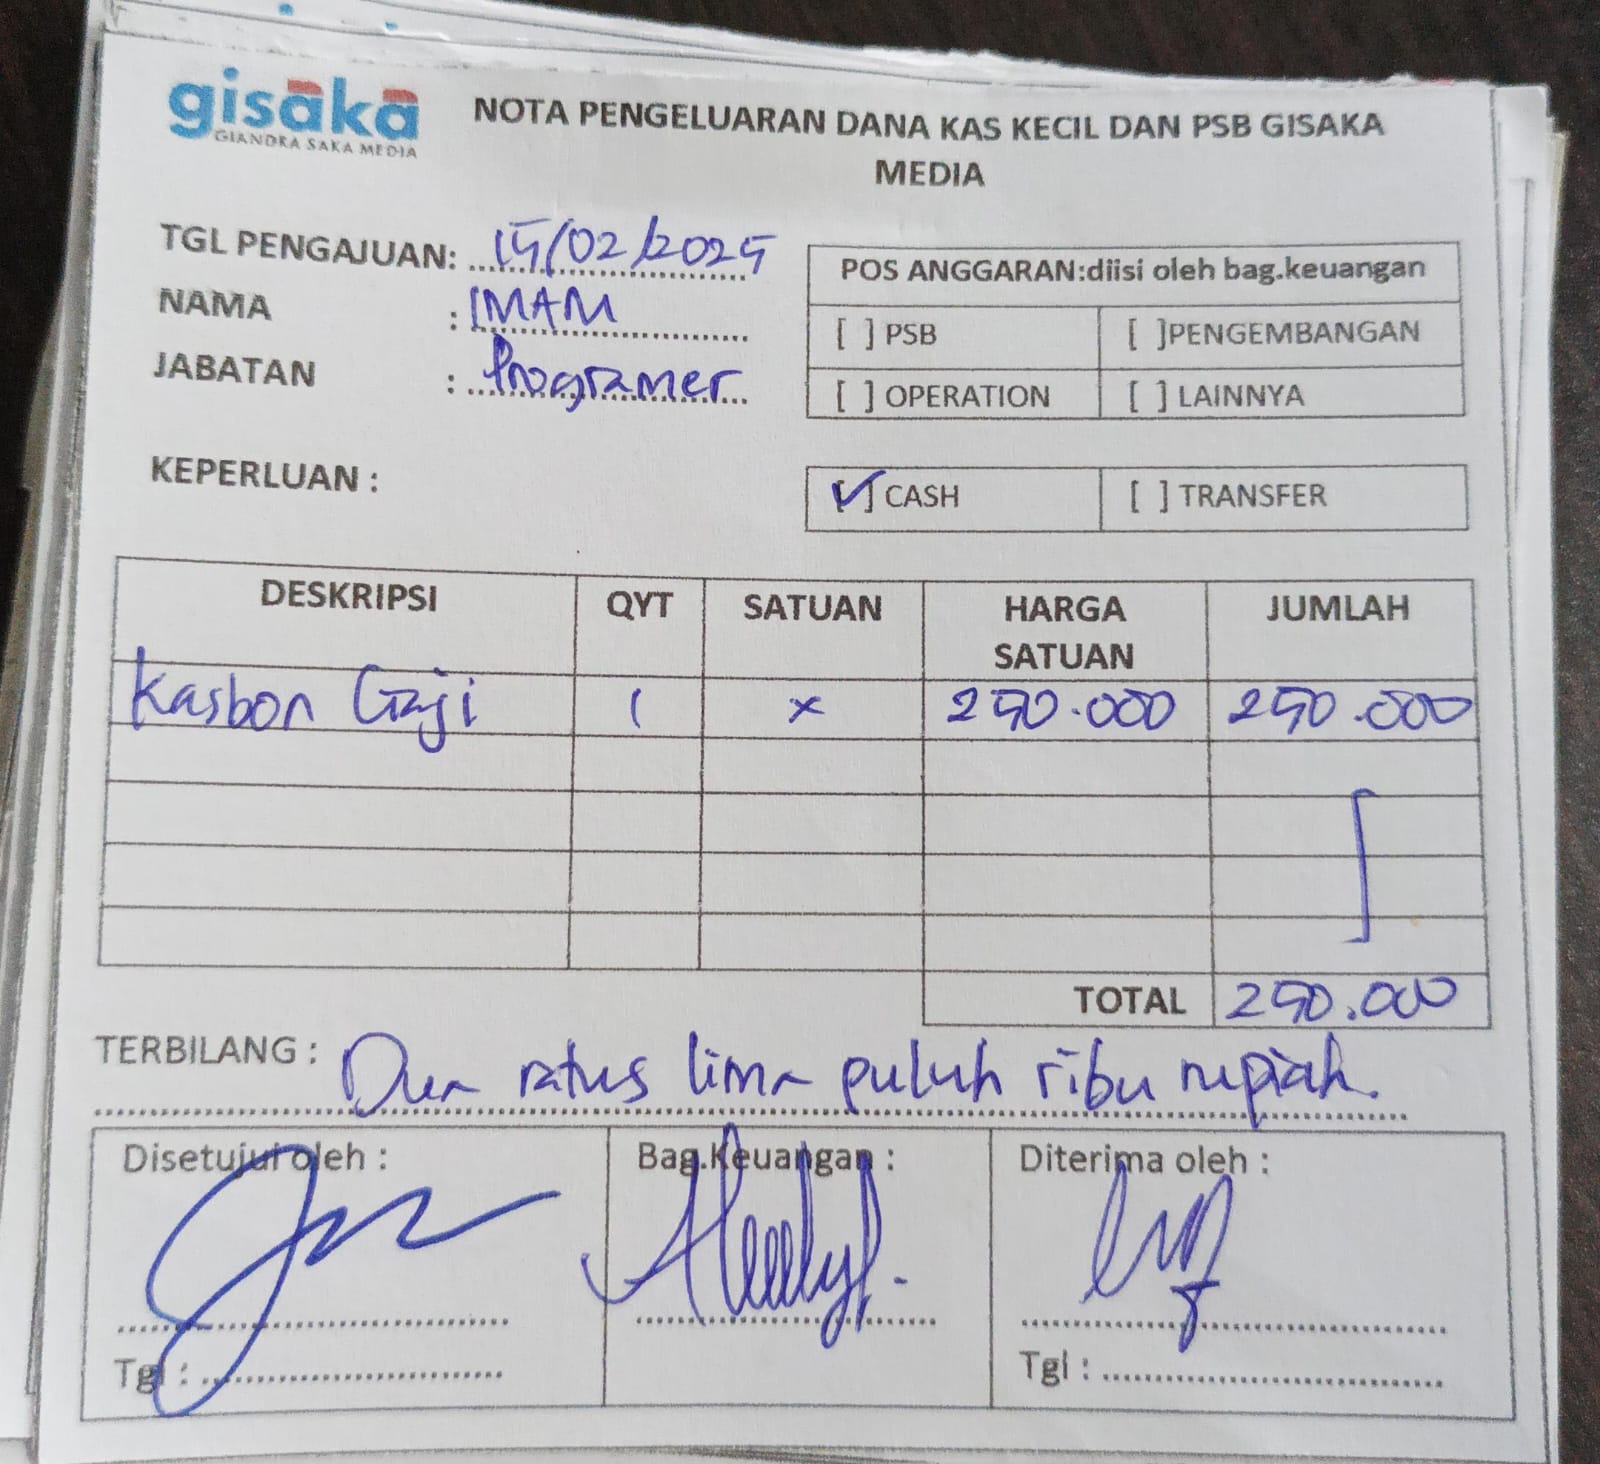 gisaka
GIANDRA SAKA MEDIA
NOTA PENGELUARAN DANA KAS KECIL DAN PSB GISAKA
MEDIA
TGL PENGAJUAN: 15/02/2025
NAMA : IMAM
JABATAN : Programer
POS ANGGARAN:diisi oleh bag.keuangan
[ ] PSB [ ]PENGEMBANGAN
[ ] OPERATION [ ] LAINNYA
KEPERLUAN :
[✓] CASH [ ] TRANSFER
DESKRIPSI QYT SATUAN HARGA SATUAN JUMLAH
Kasbon Gaji 1 x 250.000 250.000
TOTAL 250.000
TERBILANG : Dua ratus lima puluh ribu rupiah.
Disetujui oleh : Bag.Keuangan : Diterima oleh :
Tgl : Tgl :